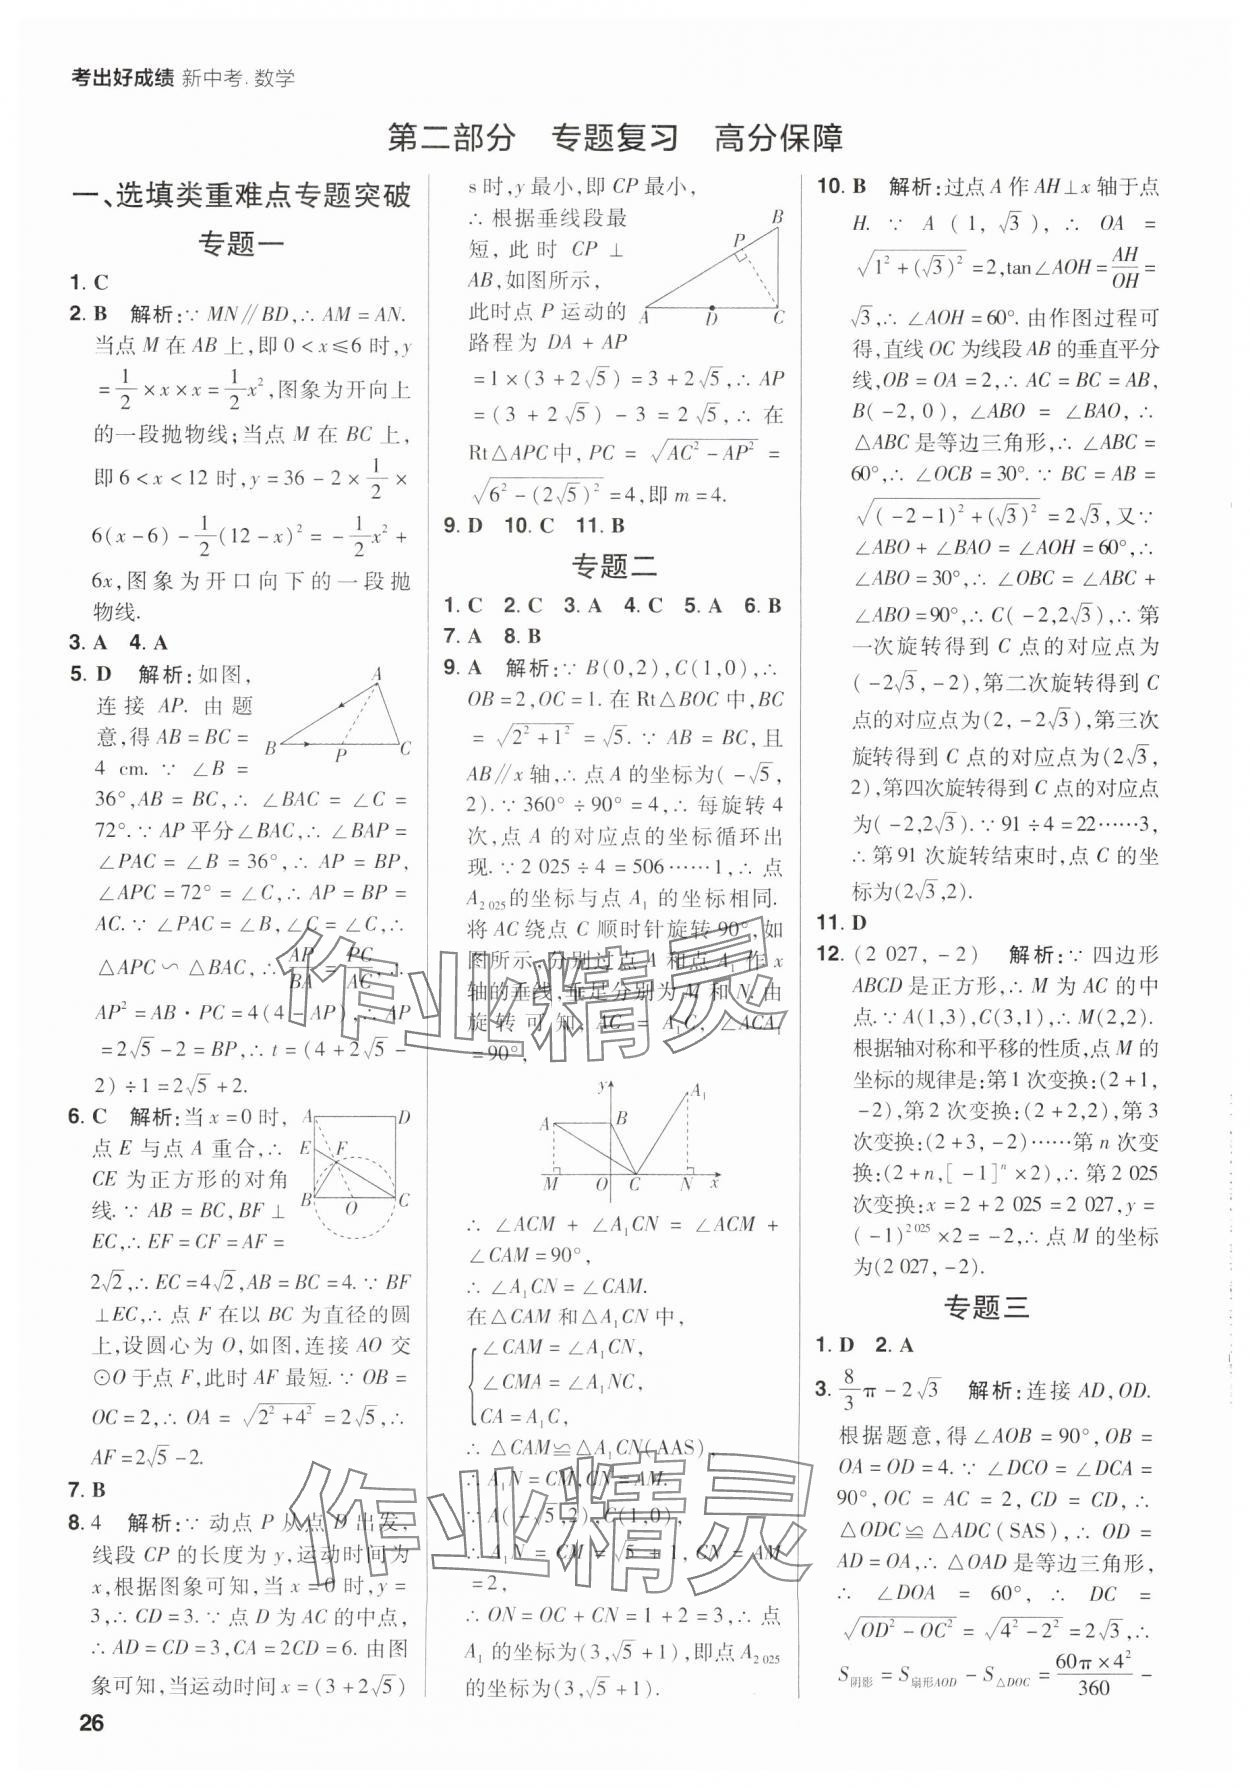 考出好成绩 新中考.数学
第二部分 专题复习 高分保障
一、选填类重难点专题突破
专题一
1. C
2. B 解析:∵ MN∥BD,∴ AM = AN.
当点 M 在 AB 上,即 0 < x ≤ 6 时,y
= 1/2 × x × x = 1/2 x²,图象为开向上
的一段抛物线;当点 M 在 BC 上,
即 6 < x < 12 时,y = 36 - 2 × 1/2 ×
6(x - 6) - 1/2 (12 - x)² = - 1/2 x² +
6x,图象为开口向下的一段抛
物线.
3. A 4. A
5. D 解析:如图,
连接 AP. 由题
意,得 AB = BC =
4 cm. ∵ ∠B =
36°,AB = BC,∴ ∠BAC = ∠C =
72°. ∵ AP 平分∠BAC,∴ ∠BAP =
∠PAC = ∠B = 36°,∴ AP = BP,
∠APC = 72° = ∠C,∴ AP = BP =
AC. ∵ ∠PAC = ∠B, ∠C = ∠C,∴
△APC ∽ △BAC,∴ AP/BA = PC/AC,∴
AP² = AB · PC = 4(4 - AP),∴ AP
= 2√5 - 2 = BP,∴ t = (4 + 2√5 -
2) ÷ 1 = 2√5 + 2.
A
B P C
6. C 解析:当 x = 0 时,
点 E 与点 A 重合,∴
CE 为正方形的对角
线. ∵ AB = BC,BF ⊥
EC,∴ EF = CF = AF =
2√2,∴ EC = 4√2,AB = BC = 4. ∵ BF
⊥EC,∴ 点 F 在以 BC 为直径的圆
上,设圆心为 O,如图,连接 AO 交
⊙O 于点 F,此时 AF 最短. ∵ OB =
OC = 2,∴ OA = √(2² + 4²) = 2√5,∴
AF = 2√5 - 2.
A D
E F
B O C
7. B
8. 4 解析:∵ 动点 P 从点 D 出发,
线段 CP 的长度为 y,运动时间为
x,根据图象可知,当 x = 0 时,y =
3,∴ CD = 3. ∵ 点 D 为 AC 的中点,
∴ AD = CD = 3,CA = 2CD = 6. 由图
象可知,当运动时间 x = (3 + 2√5)
26
s 时,y 最小,即 CP 最小,
∴ 根据垂线段最
短,此时 CP ⊥
AB,如图所示,
此时点 P 运动的
路程为 DA + AP
= 1 × (3 + 2√5) = 3 + 2√5,∴ AP
= (3 + 2√5) - 3 = 2√5,∴ 在
Rt△APC 中,PC = √(AC² - AP²) =
√(6² - (2√5)²) = 4,即 m = 4.
B
P
A D C
9. D 10. C 11. B
专题二
1. C 2. C 3. A 4. C 5. A 6. B
7. A 8. B
9. A 解析:∵ B(0,2),C(1,0),∴
OB = 2,OC = 1. 在 Rt△BOC 中,BC
= √(2² + 1²) = √5. ∵ AB = BC,且
AB∥x 轴,∴ 点 A 的坐标为( -√5,
2). ∵ 360° ÷ 90° = 4,∴ 每旋转 4
次,点 A 的对应点的坐标循环出
现. ∵ 2 025 ÷ 4 = 506……1,∴ 点
A₂₀₂₅的坐标与点 A₁ 的坐标相同.
将 AC 绕点 C 顺时针旋转 90°,如
图所示,分别过点 A 和点 A₁ 作 x
轴的垂线,垂足分别为 M 和 N. 由
旋转可知, AC = A₁C, ∠ACA₁
= 90°,
y A₁
A B
M O C N x
∴ ∠ACM + ∠A₁CN = ∠ACM +
∠CAM = 90°,
∴ ∠A₁CN = ∠CAM.
在△CAM 和△A₁CN 中,
∠CAM = ∠A₁CN,
∠CMA = ∠A₁NC,
CA = A₁C,
∴ △CAM≌△A₁CN(AAS),
∴ A₁N = CM,CN = AM.
∵ A( -√5,2),C(1,0),
∴ A₁N = CM = √5 + 1, CN = AM
= 2,
∴ ON = OC + CN = 1 + 2 = 3,∴ 点
A₁ 的坐标为(3,√5 + 1),即点 A₂₀₂₅
的坐标为(3,√5 + 1).
10. B 解析:过点 A 作 AH⊥x 轴于点
H. ∵ A (1, √3), ∴ OA =
√(1² + (√3)²) = 2,tan∠AOH = AH/OH =
√3,∴ ∠AOH = 60°. 由作图过程可
得,直线 OC 为线段 AB 的垂直平分
线,OB = OA = 2,∴ AC = BC = AB,
B( - 2,0), ∠ABO = ∠BAO, ∴
△ABC 是等边三角形,∴ ∠ABC =
60°,∴ ∠OCB = 30°. ∵ BC = AB =
√(( - 2 - 1)² + (√3)²) = 2√3,又∵
∠ABO + ∠BAO = ∠AOH = 60°,∴
∠ABO = 30°,∴ ∠OBC = ∠ABC +
∠ABO = 90°,∴ C( - 2,2√3),∴ 第
一次旋转得到 C 点的对应点为
( - 2√3, - 2),第二次旋转得到 C
点的对应点为(2, - 2√3),第三次
旋转得到 C 点的对应点为(2√3,
2),第四次旋转得到 C 点的对应点
为( - 2,2√3). ∵ 91 ÷ 4 = 22……3,
∴ 第 91 次旋转结束时,点 C 的坐
标为(2√3,2).
11. D
12. (2 027, - 2) 解析:∵ 四边形
ABCD 是正方形,∴ M 为 AC 的中
点. ∵ A(1,3),C(3,1),∴ M(2,2).
根据轴对称和平移的性质,点 M 的
坐标的规律是:第 1 次变换:(2 + 1,
- 2),第 2 次变换:(2 + 2,2),第 3
次变换:(2 + 3, - 2)……第 n 次变
换:(2 + n,[ - 1]ⁿ × 2),∴ 第 2 025
次变换:x = 2 + 2 025 = 2 027,y =
( - 1)²⁰²⁵ × 2 = - 2,∴ 点 M 的坐标
为(2 027, - 2).
专题三
1. D 2. A
3. 8/3 π - 2√3 解析:连接 AD,OD.
根据题意,得 ∠AOB = 90°,OB =
OA = OD = 4. ∵ ∠DCO = ∠DCA =
90°, OC = AC = 2, CD = CD, ∴
△ODC ≌ △ADC (SAS), ∴ OD =
AD = OA,∴ △OAD 是等边三角形,
∴ ∠DOA = 60°, ∴ DC =
√(OD² - OC²) = √(4² - 2²) = 2√3,∴
S阴影 = S扇形AOD - S△DOC = 60π × 4²/360 -
作业精灵
作业精灵